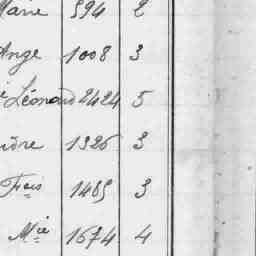 Marie 394 2
Ange 1008 3
Léonard 2424 5
1326 3
Fçois 1485 3
Mie 1674 4